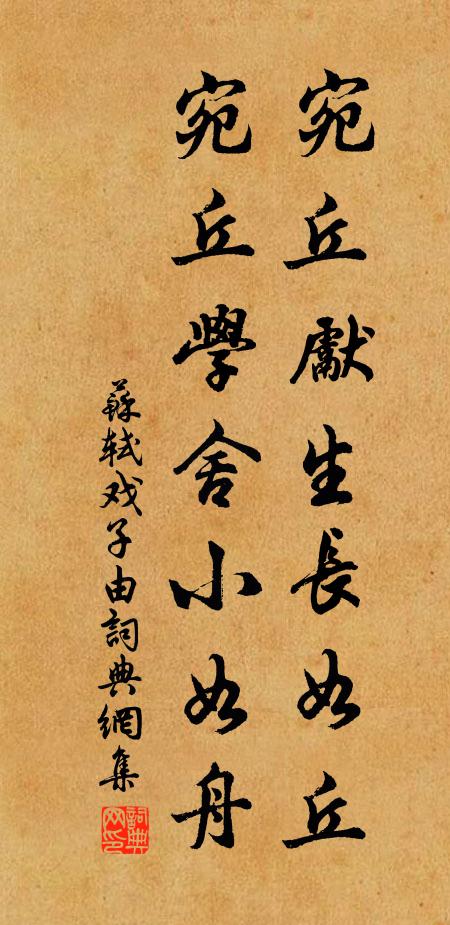 宛丘獻生長如丘
宛丘學舍小如舟
蘇軾戏子由詞典網集
詞典网印